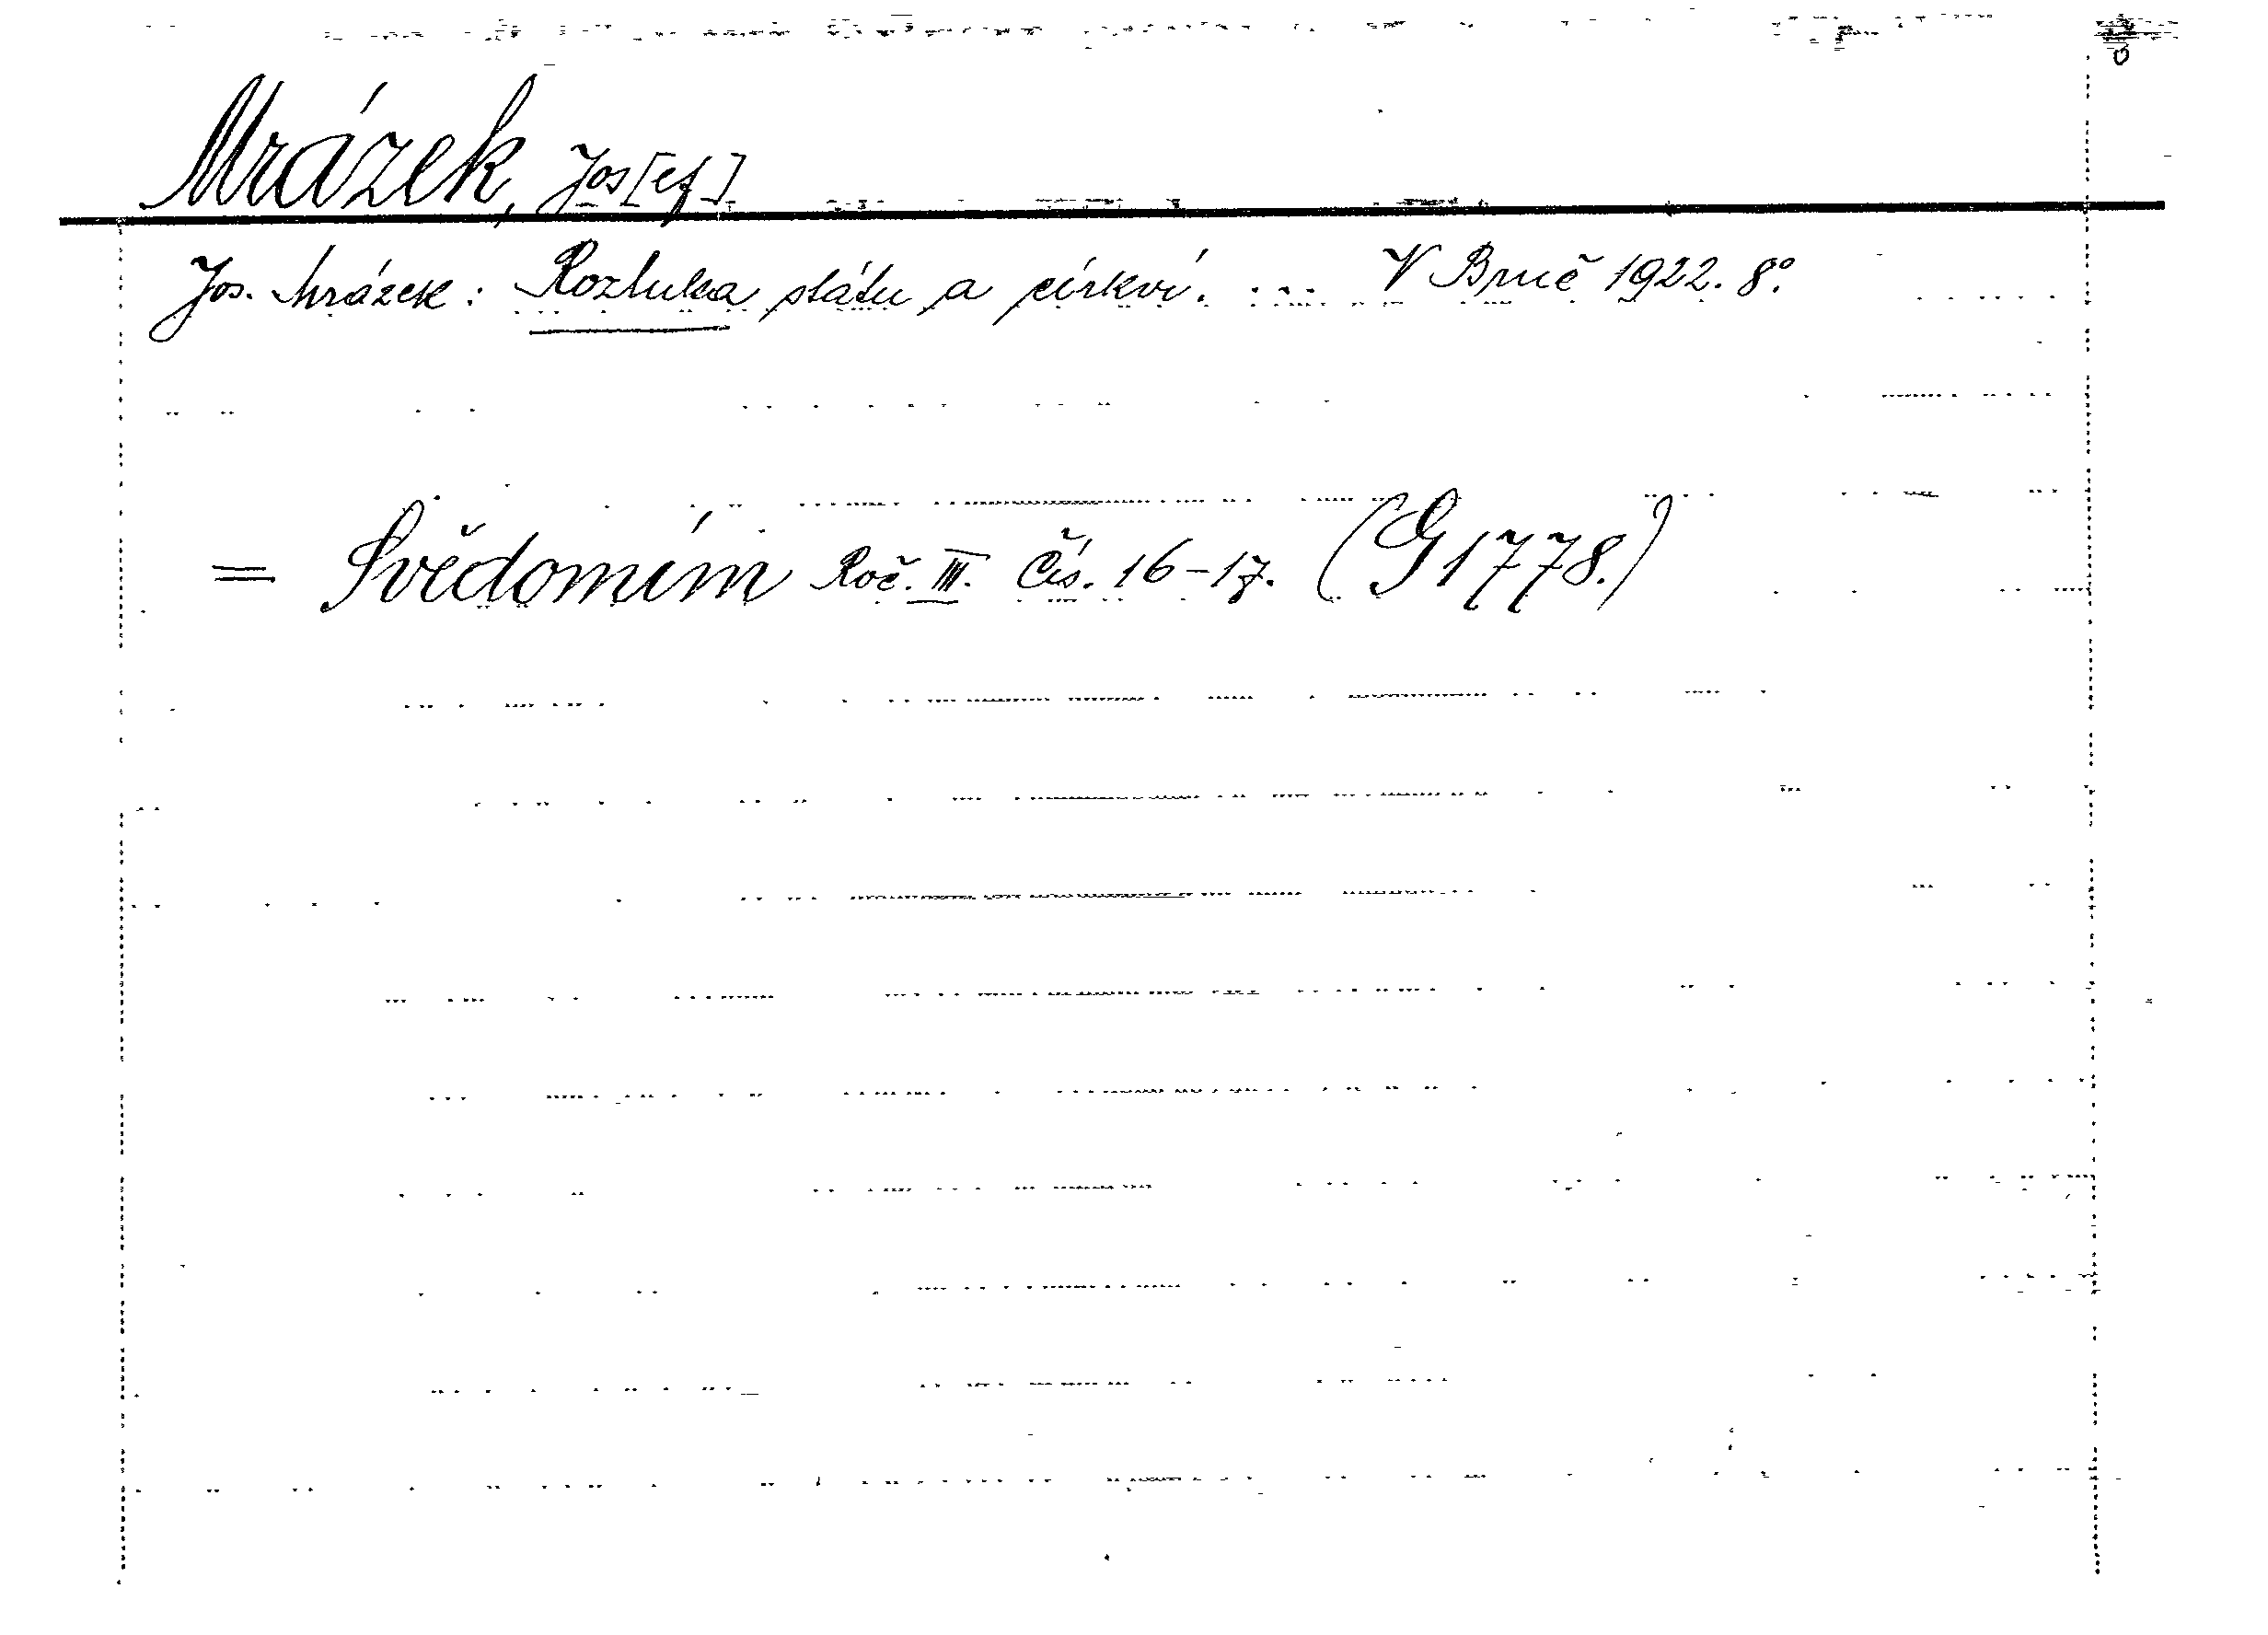 Mrázek, Jos[ef]
Jos. Mrázek: Rozluka státu a církví. ... V Brně 1922. 8°.
= Svědomím Roč. III. Čís. 16-17. (G 1778.)